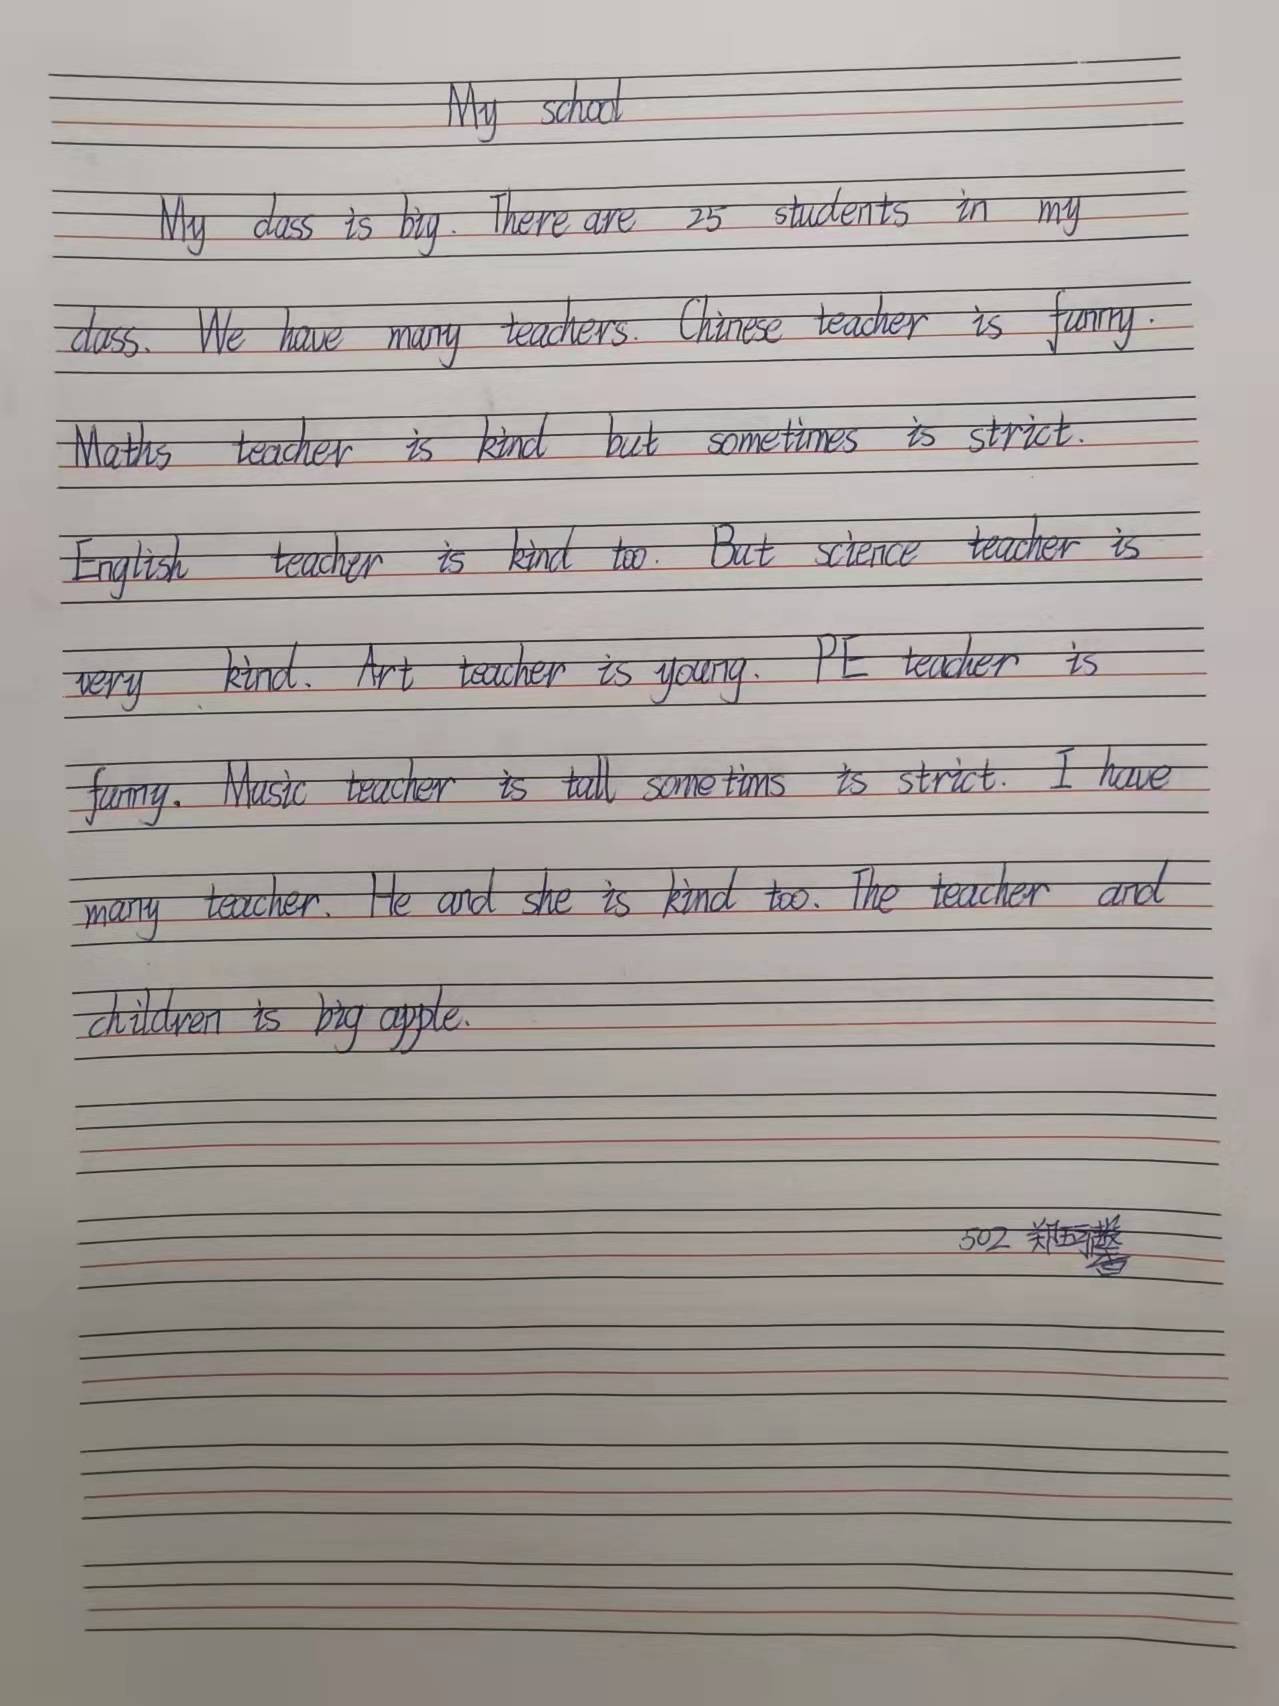 My school
My class is big. There are 25 students in my
class. We have many teachers. Chinese teacher is funny.
Maths teacher is kind but sometimes is strict.
English teacher is kind too. But science teacher is
very kind. Art teacher is young. PE teacher is
funny. Music teacher is tall sometims is strict. I have
many teacher. He and she is kind too. The teacher and
children is big apple.
502